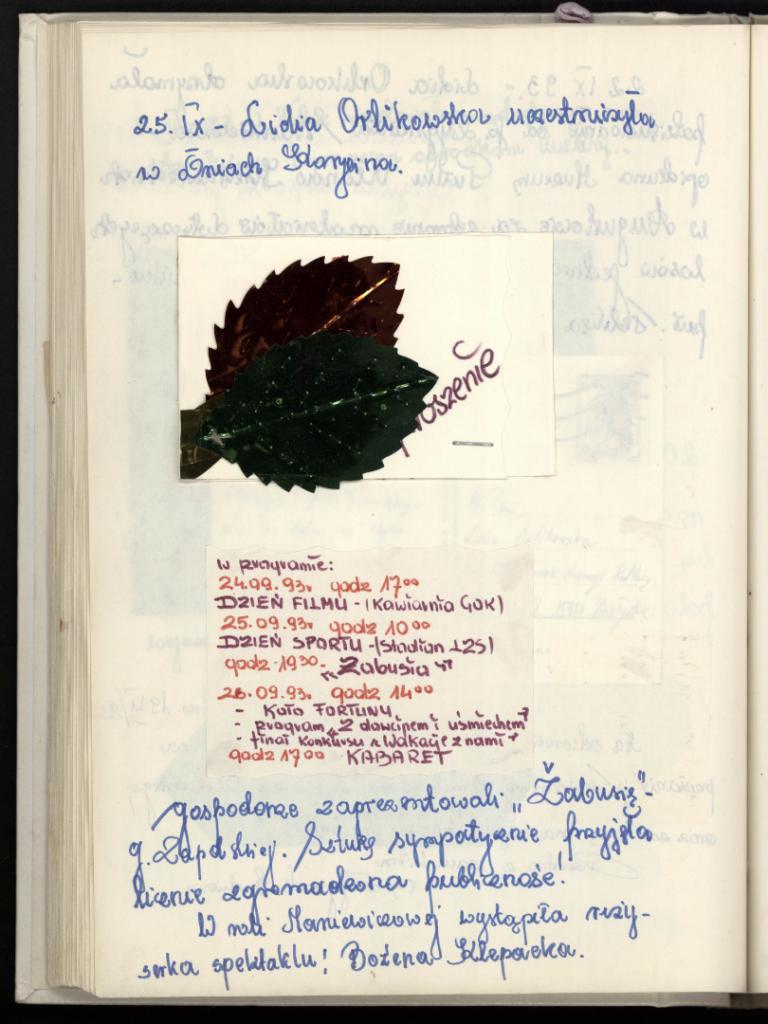 25. IX - Lidia Orlikowska uczestniczyła
w Dniach Goszczina.
oszenie
w programie:
24.09.93r godz 17⁰⁰
DZIEŃ FILMU - (Kawiarnia GOK)
25.09.93r godz 10⁰⁰
DZIEŃ SPORTU - (Stadion LZS)
godz 19³⁰ - "Żabusia"
26.09.93r godz 14⁰⁰
- KOŁO FORTUNY
- program "Z dowcipem i uśmiechem"
- finał konkursu "Wakacje z nami"
godz 17⁰⁰ KABARET
Gospodarze zaprezentowali „Żabusię" -
g. Zapolskiej. Sztukę sympatycznie przyjęła
licznie zgromadzona publiczność.
W roli Maniewiczowej wystąpiła reży-
serka spektaklu! Bożena Klepacka.